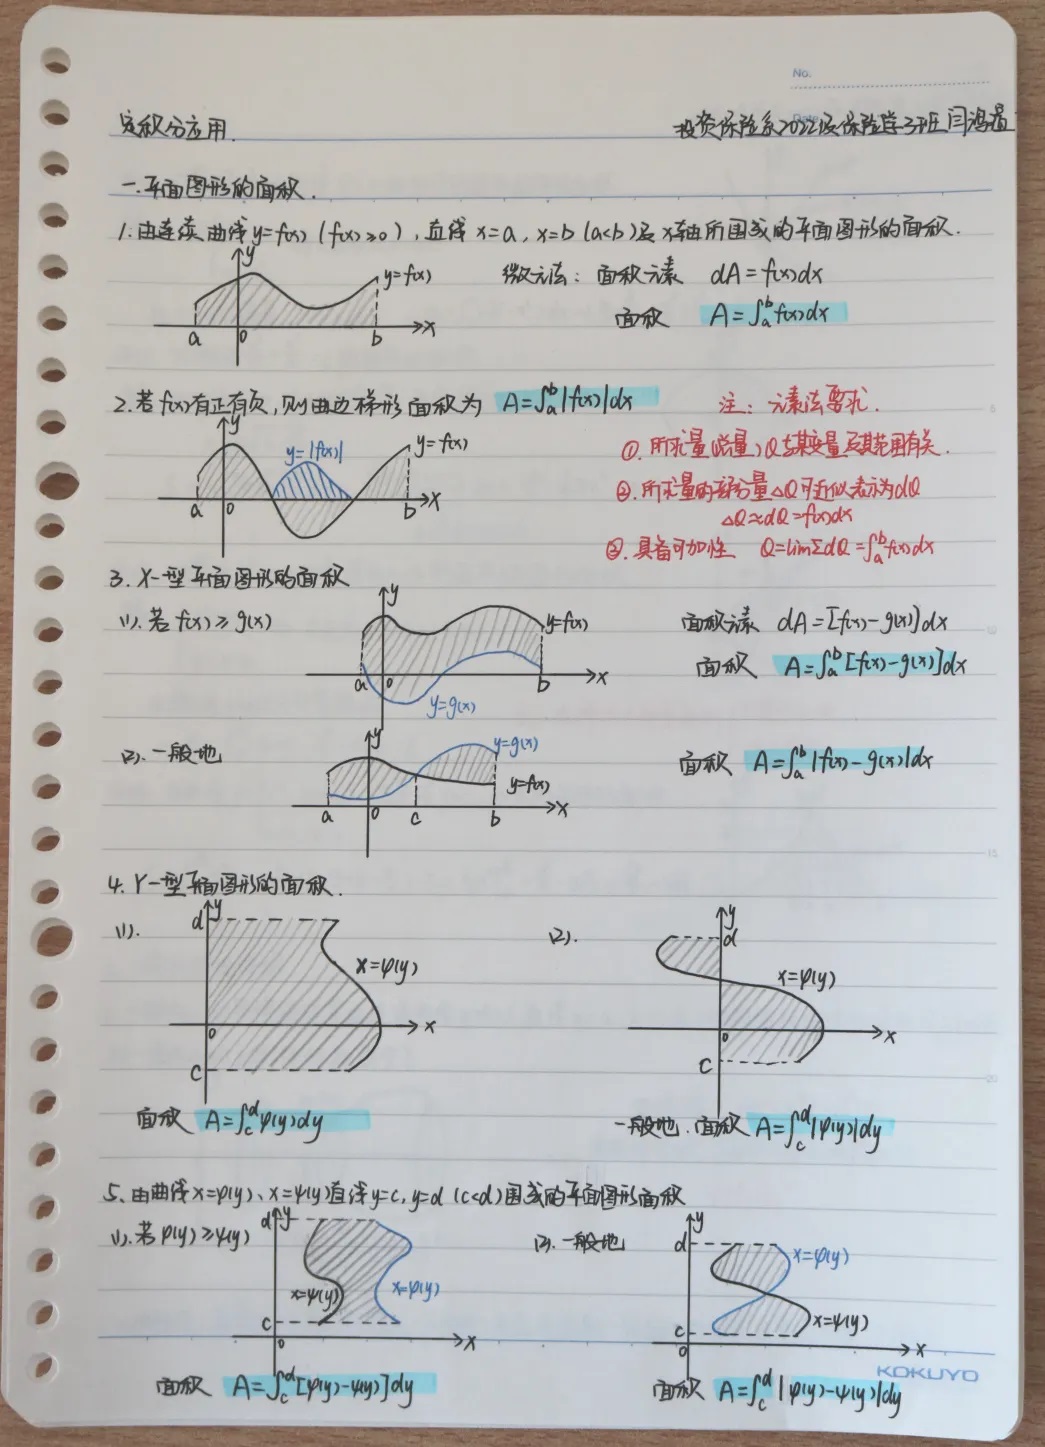 No.
Date
定积分应用.
投资保险系2022级保险学3班 闫鸿
一.平面图形的面积.
1.由连续曲线y=f(x) (f(x)≥0), 直线 x=a, x=b (a<b)及x轴所围成的平面图形的面积.
y
y=f(x)
a 0 b x
微元法: 面积元素 dA=f(x)dx
面积 A=∫ₐᵇf(x)dx
2.若f(x)有正有负,则曲边梯形面积为 A=∫ₐᵇ|f(x)|dx
注: 元素法要求.
y
y=|f(x)|
y=f(x)
a 0 b x
①.所求量(总量)Q与某变量及其范围有关.
②.所求量的部分量△Q可近似表示为dQ
△Q≈dQ=f(x)dx
③.具备可加性 Q=lim∑dQ=∫ₐᵇf(x)dx
3.X-型平面图形的面积
(1).若f(x)≥g(x)
y
y=f(x)
a 0 b x
y=g(x)
面积元素 dA=[f(x)-g(x)]dx
面积 A=∫ₐᵇ[f(x)-g(x)]dx
(2).一般地
y
y=g(x)
y=f(x)
a 0 c b x
面积 A=∫ₐᵇ|f(x)-g(x)|dx
4.Y-型平面图形的面积.
(1).
d y
x=φ(y)
0 x
c
面积 A=∫_c^d φ(y)dy
(2).
y
d
x=φ(y)
0 x
c
一般地.面积 A=∫_c^d |φ(y)|dy
5.由曲线x=φ(y)、x=ψ(y)直线y=c,y=d (c<d)围成的平面图形面积
(1).若φ(y)≥ψ(y)
d y
x=ψ(y) x=φ(y)
c
0 x
面积 A=∫_c^d [φ(y)-ψ(y)]dy
(2).一般地
y
d
x=φ(y)
x=ψ(y)
c
0 x
面积 A=∫_c^d |φ(y)-ψ(y)|dy
KOKUYO